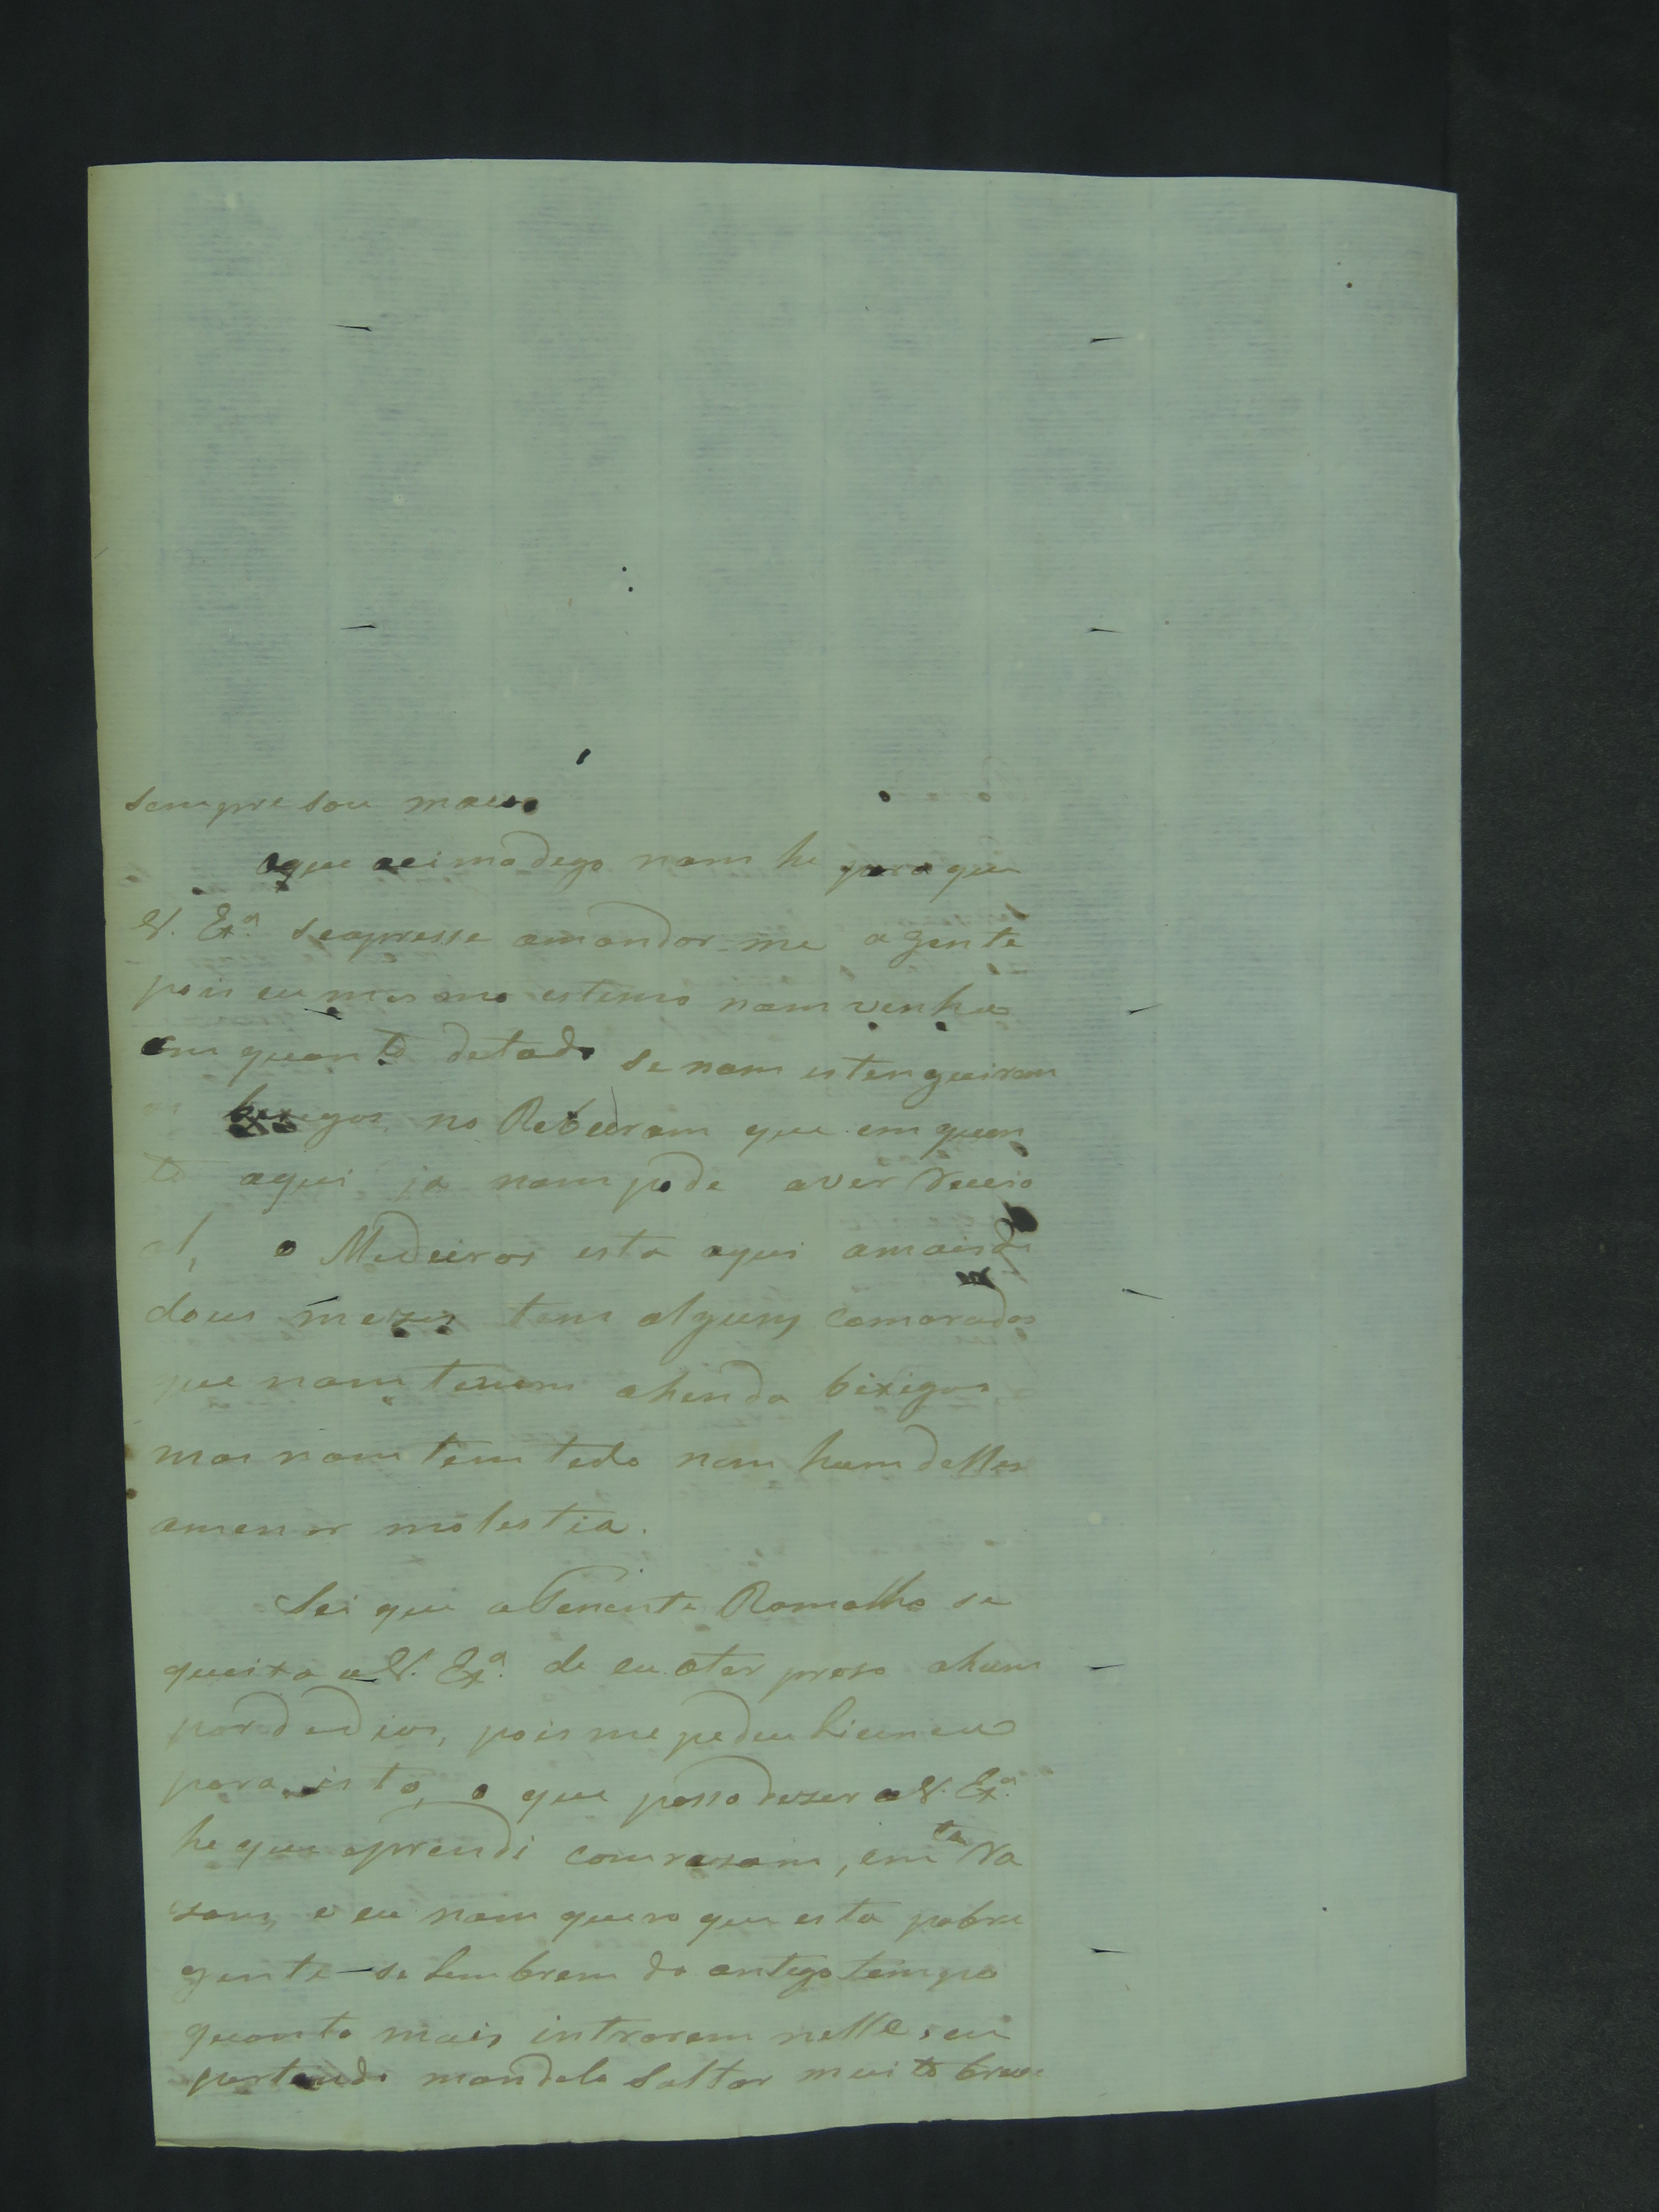 sempre sou mau
oque acimadego nam he para que
V. Ex.ª seapresse amandar-me agente
pois eu mesmo estimo nam venha
em quanto detodo se nam estenguirem
as bexegas no Rebeiram que em quan
to aqui ja nam pode aver Receio
al, o Medeiros esta aqui amais de
dous mezes tem alguns camaradas
que nam tiveram ahinda bixigas
mas nam tem tedo nem hum delles
amenor molestia.
Sei que oTenente Ramalho se
queixa a V. Ex.ª de eu ter preso ahum
pordedios, pois me pedeu licença
para isto, o que posso dezer a V. Ex.ª
he que oprendi comrazam, em ta Ra
zam, e eu nam quero que esta pobre
gente se lembrem do antego tempo
quanto mais intrarem nelle, eu
pertendo mandalo Saltar muito breve